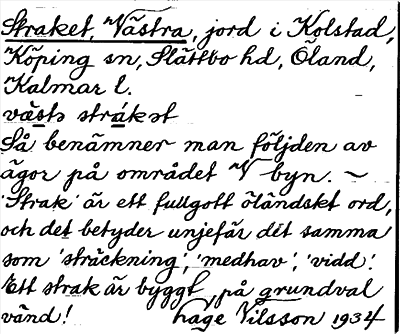 Straket, Västra, jord i Kolstad,
Köping sn, Slättbo hd, Öland,
Kalmar l.
västə strákət
Så benämner man följden av
ägor på området V byn. —
'Strak' är ett fullgott öländskt ord,
och det betyder unjefär det samma
som 'sträckning', 'medhav', 'vidd'.
Ett strak är byggt, på grundval
vänd! Hage Nilsson 1934